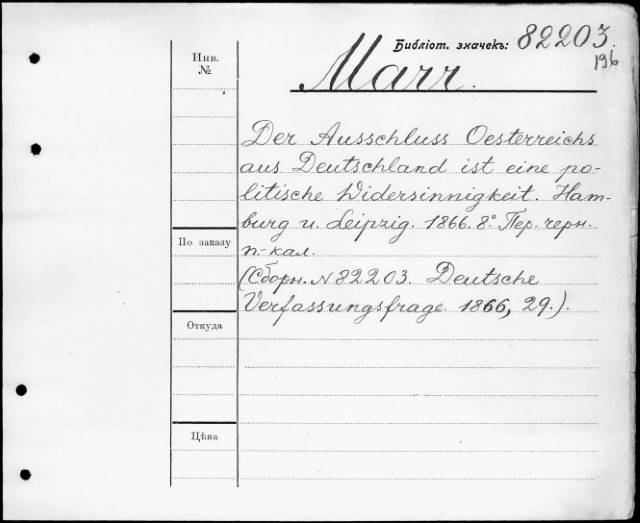 Библіот. значекъ: 82203.
196
Marr.
Инв.
№
Der Ausschluss Oesterreichs
aus Deutschland ist eine po-
litische Widersinnigkeit. Ham-
burg u. Leipzig. 1866. 8° Пер. черн.
п.-кал.
(Сборн. N 82203. Deutsche
Verfassungsfrage 1866, 29.).
По заказу
Откуда
Цѣна